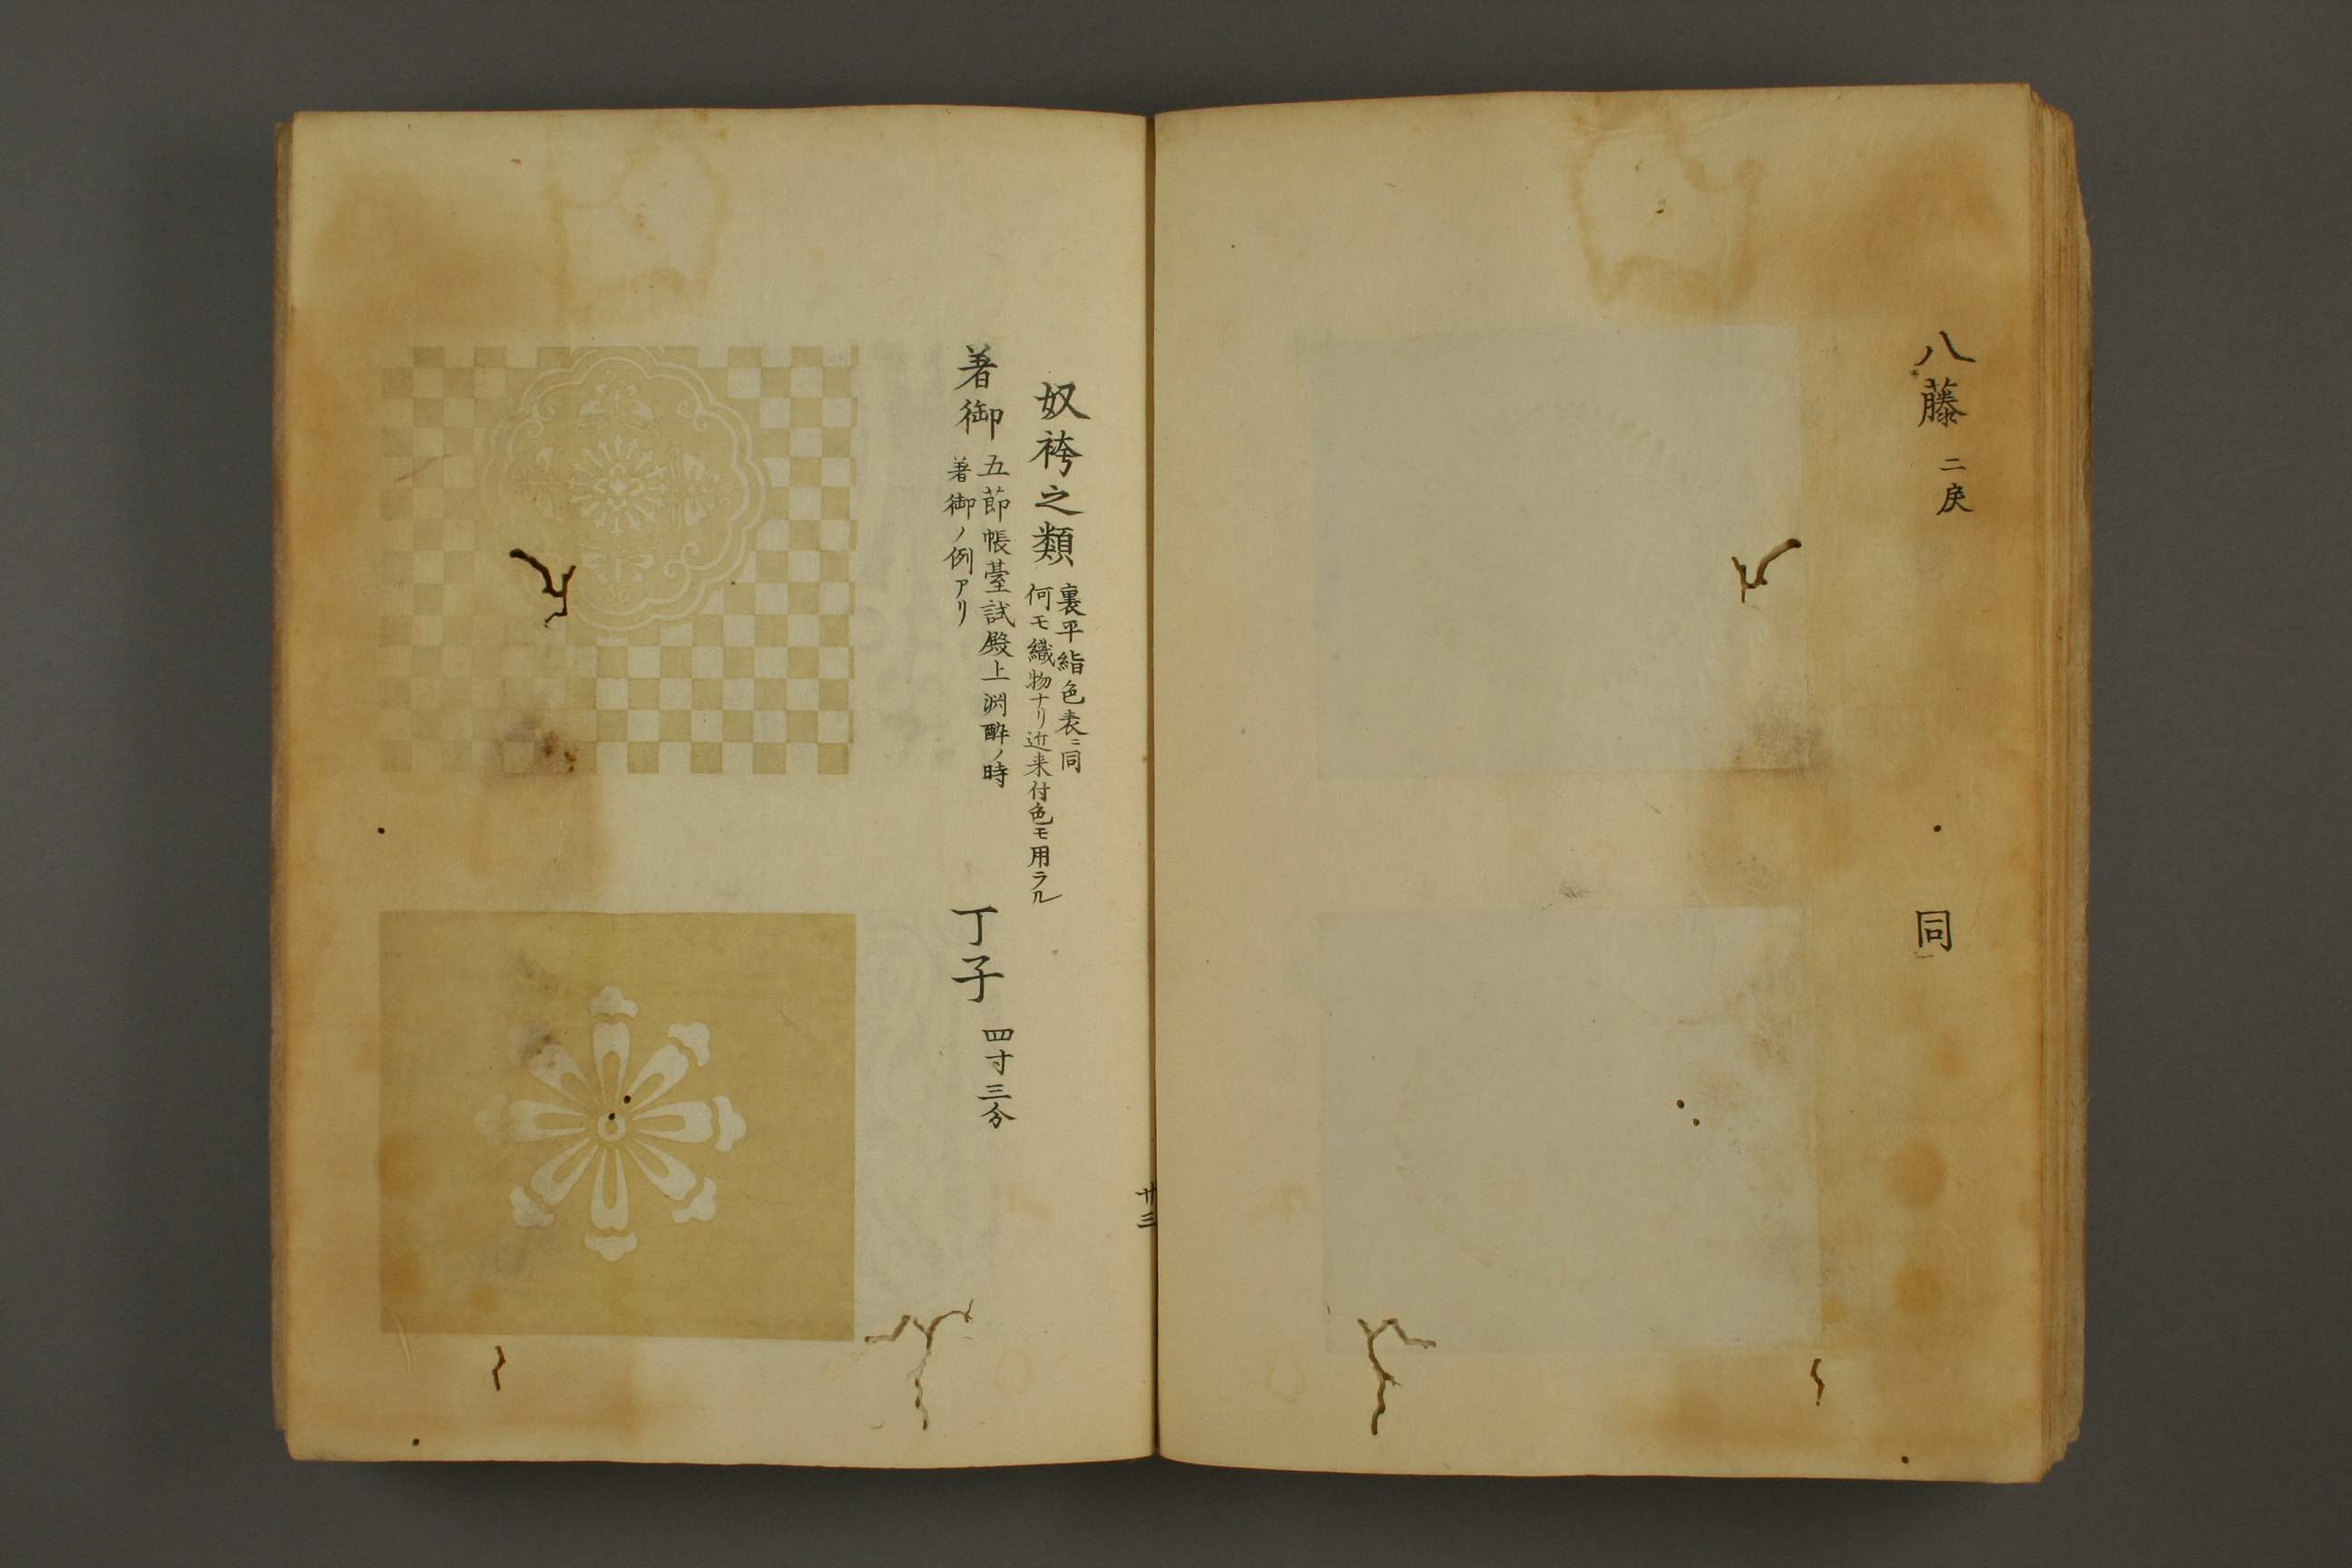 八藤 二戻
同
奴袴之類 裏平絹色表ニ同
何モ織物ナリ近来付色モ用ラル
著御 五節帳臺試殿上渕酔ノ時
著御ノ例アリ
丁子 四寸三分
廿三